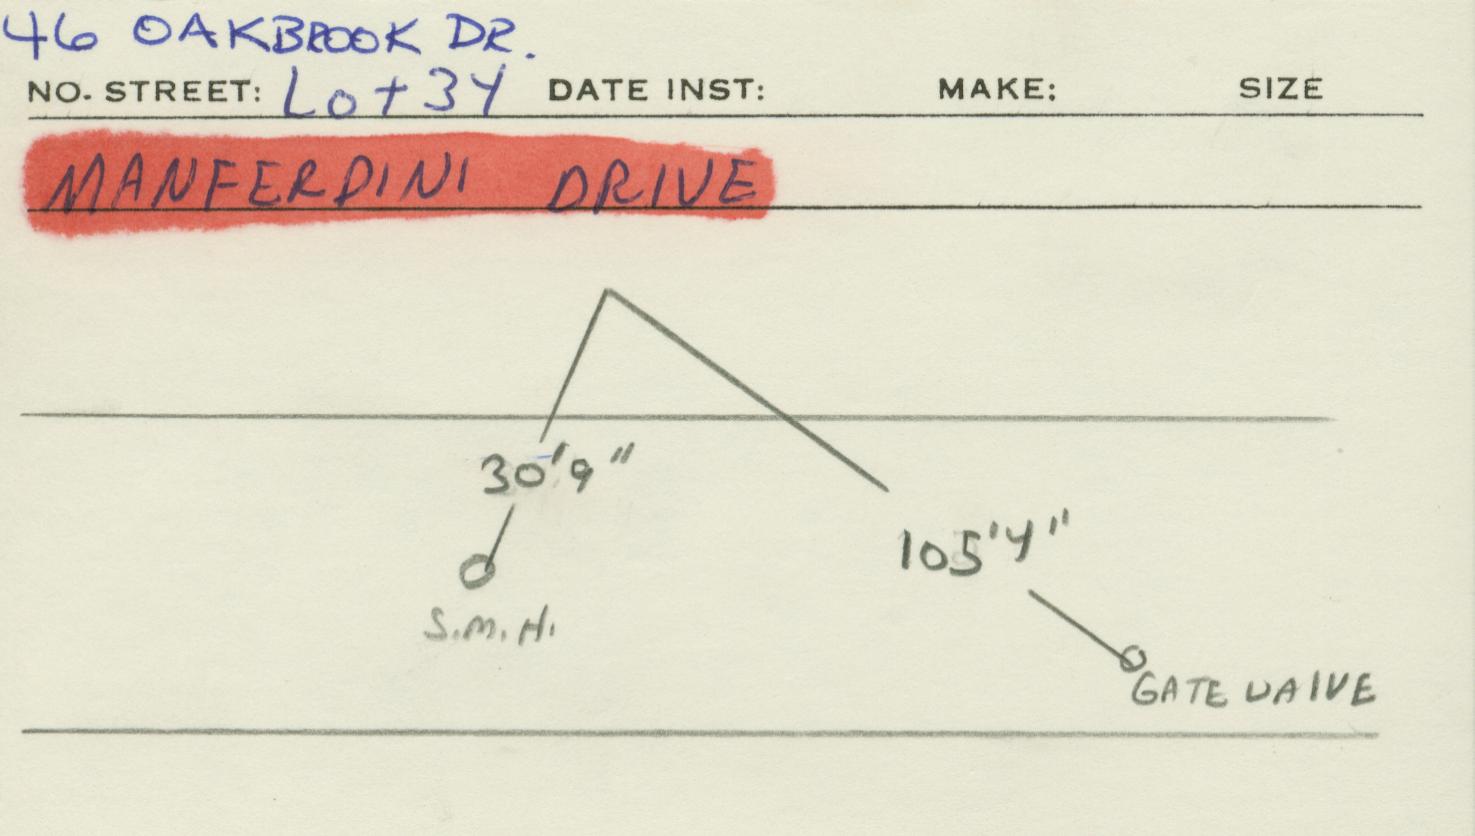 46 OAKBROOK DR.
NO. STREET: Lot 34 DATE INST: MAKE: SIZE
MANFERDINI DRIVE
30'9"
105'4"
S.M.H.
GATE VALVE